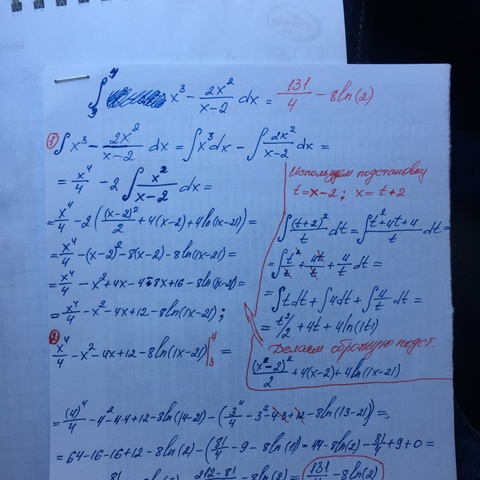 ∫₃⁴ x³ - 2x²/(x-2) dx = 131/4 - 8ln(2)
① ∫x³ - 2x²/(x-2) dx = ∫x³dx - ∫2x²/(x-2) dx =
= x⁴/4 - 2∫x²/(x-2) dx =
= x⁴/4 - 2((x-2)²/2 + 4(x-2) + 4ln(|x-2|)) =
= x⁴/4 - (x-2)² - 8(x-2) - 8ln(|x-2|) =
= x⁴/4 - x² + 4x - 4 - 8x + 16 - 8ln(|x-2|) =
= x⁴/4 - x² - 4x + 12 - 8ln(|x-2|);
Используем подстановку
t = x-2; x = t+2
∫(t+2)²/t dt = ∫(t²+4t+4)/t dt =
= ∫t²/t + 4t/t + 4/t dt =
= ∫t dt + ∫4dt + ∫4/t dt =
= t²/2 + 4t + 4ln(|t|)
Делаем обратную подст.
(x-2)²/2 + 4(x-2) + 4ln(|x-2|)
② x⁴/4 - x² - 4x + 12 - 8ln(|x-2|) |₃⁴ =
= (4)⁴/4 - 4² - 4·4 + 12 - 8ln(|4-2|) - (3⁴/4 - 3² - 4·3 + 12 - 8ln(|3-2|)) =
= 64 - 16 - 16 + 12 - 8ln(2) - (81/4 - 9 - 8ln(1)) = 44 - 8ln(2) - 81/4 + 9 + 0 =
81 212-81 - 8ln(2) = 131 - 8ln(2)